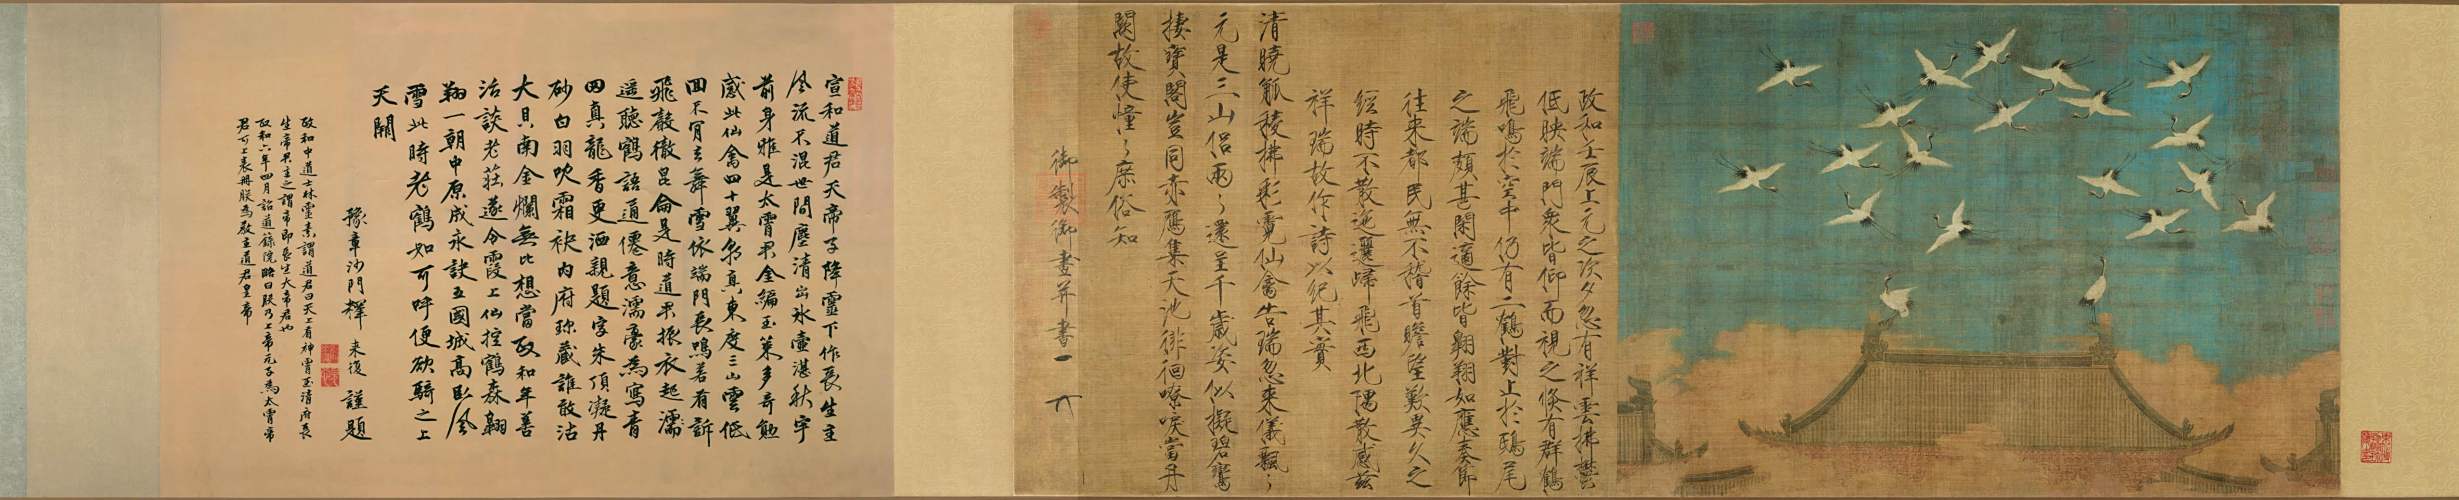 政和壬辰上元之次夕忽有祥雲拂鬱
低映端門衆皆仰而視之倏有群鶴
飛鳴於空中仍有二鶴對止於鴟尾
之端頗甚閑適餘皆翺翔如應奏節
往來都民無不稽首瞻望歎異久之
經時不散迤邐歸飛西北隅散感兹
祥瑞故作詩以紀其實
清曉觚稜拂彩霓仙禽告瑞忽來儀飄〻
元是三山侣兩〻還呈千歲姿似擬碧鸞
棲寳閣豈同赤鴈集天池徘徊嘹唳當丹
闕故使憧〻庶俗知
御製御畫并書
宣和道君天帝子降靈下作長生主
風流不混世間塵清出氷壺湛秋宇
前身雅是太霄君金編玉策多奇勳
感此仙禽四十翼朝真東度三山雲低
回不肯去舞雪依端門長鳴若有訴
飛聲徹昆侖是時道君振衣起濡
遥聽鶴語通僊意濡豪為寫青
田真龍香更洒親題字朱頂凝丹
砂白羽吹霜袂内府珎藏誰敢沽
大貝南金爛無比想當政和年善
治談老莊遂令霞上仙控鶴森翺
翔一朝中原成永訣五國城高卧風
雪此時老鶴如可呼便欲騎之上
天闕
豫章沙門釋 来復 謹題
政和中道士林靈素謂道君曰天上有神霄玉清府長
生帝君主之謂帝即長生大帝君也
政和六年四月詔道籙院略曰朕乃上帝元子為太霄帝
君可上表冊朕為教主道君皇帝